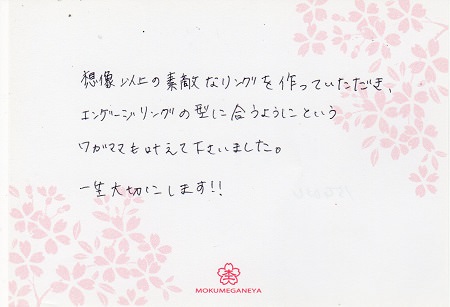 想像以上の素敵なリングを作っていただき、
エンゲージリングの型に合うようにという
ワガママも叶えて下さいました。
一生大切にします!!
MOKUMEGANEYA